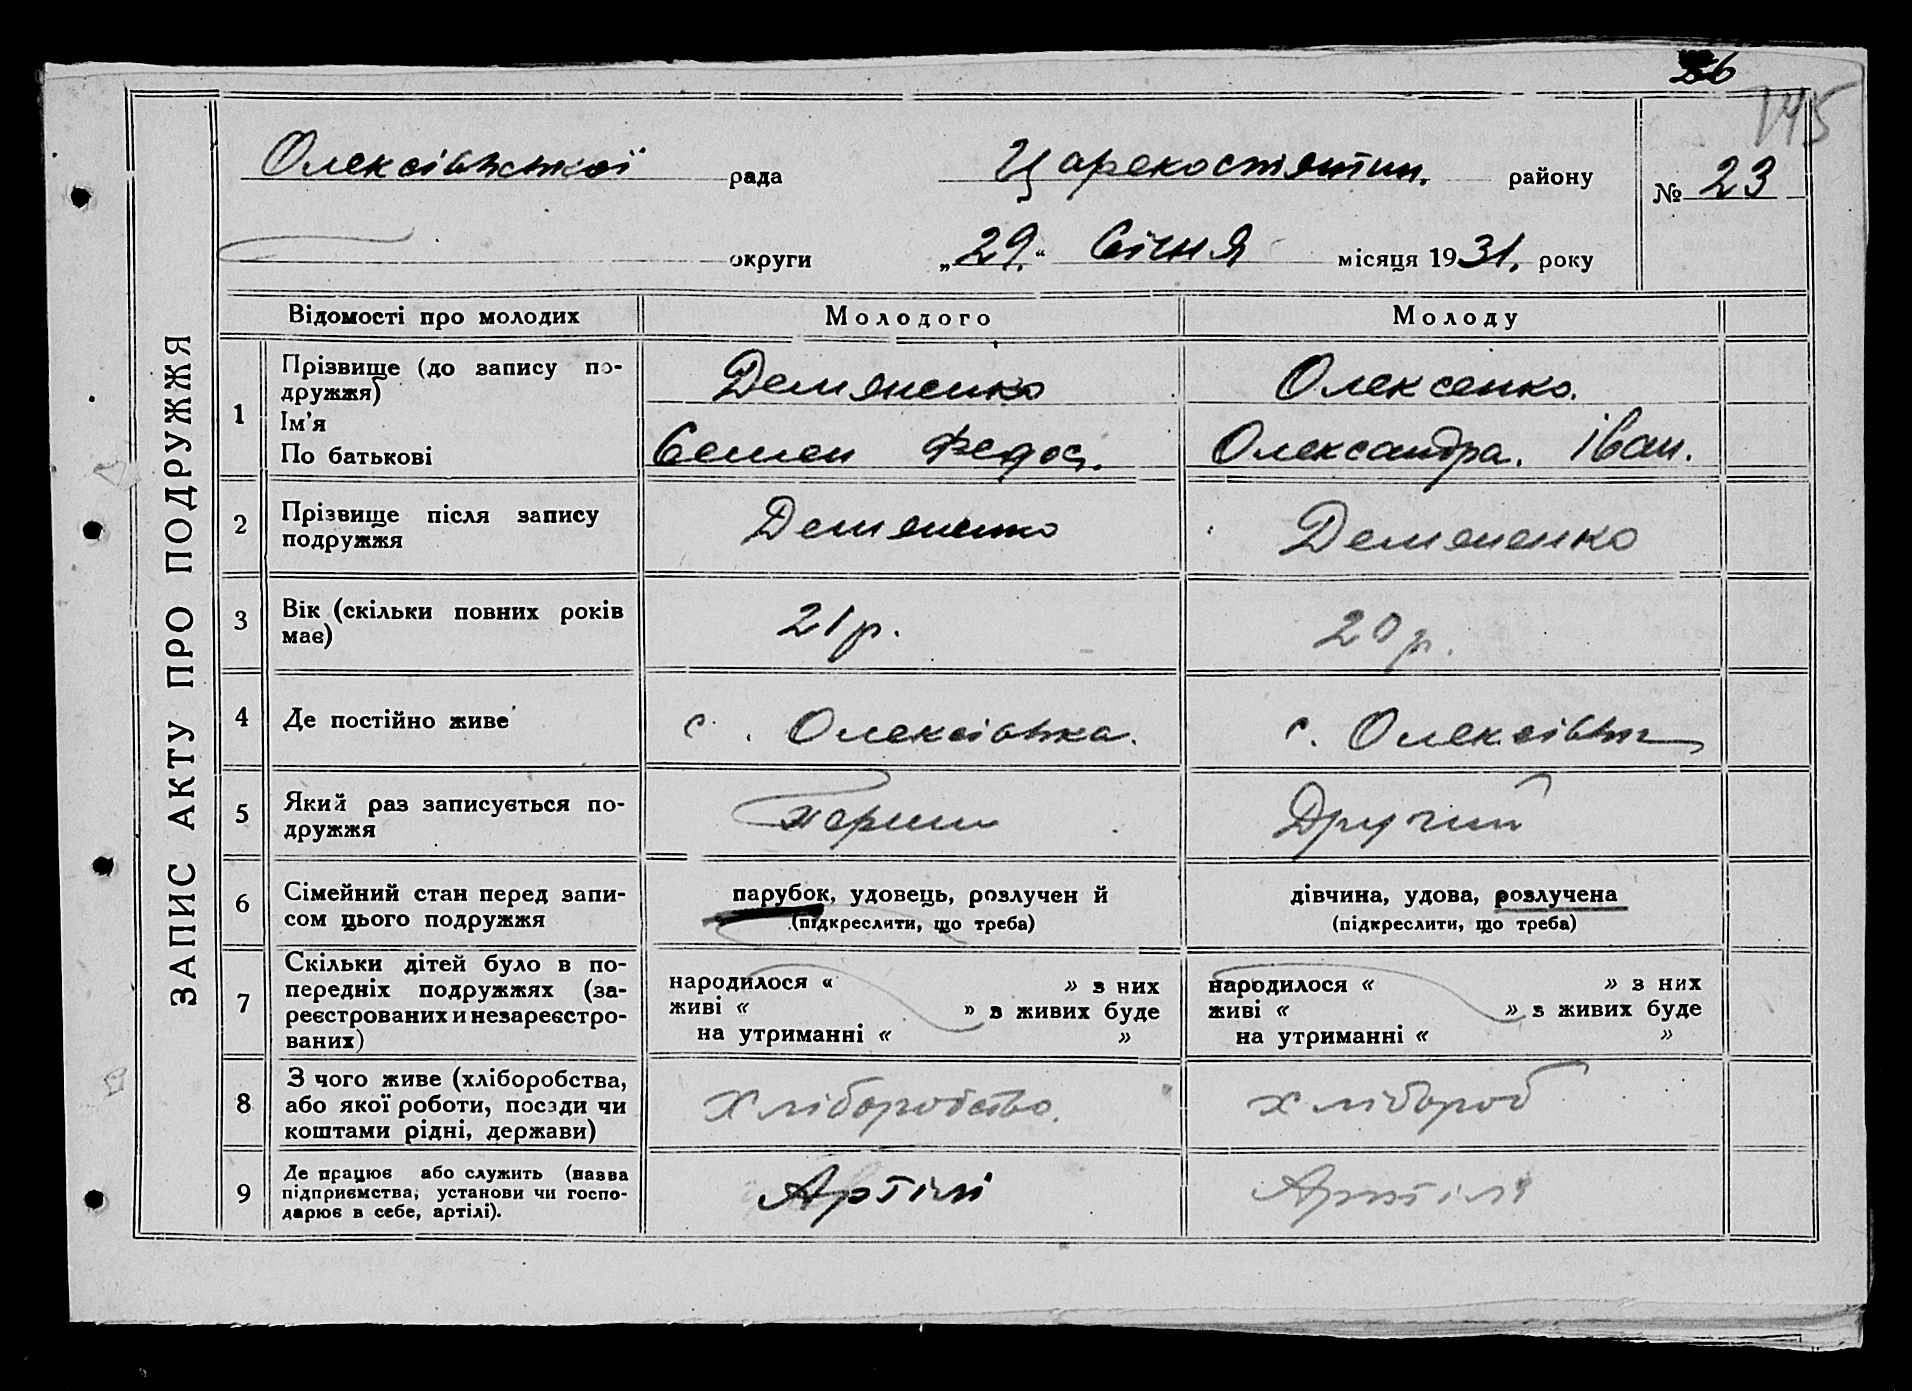 145
Олексіівської рада Царекостянтин. району № 23
округи „29.“ Січня місяця 1931. року
ЗАПИС АКТУ ПРО ПОДРУЖЖЯ
Відомості про молодих Молодого Молоду
1 Прізвище (до запису по-
дружжя) Демяненко Олексенко.
Ім'я
По батькові Семен Федос. Олександра. Іван.
2 Прізвище після запису
подружжя Демяненко Демяненко
3 Вік (скільки повних років
має) 21 р. 20 р.
4 Де постійно живе с. Олексіівка. с. Олексіівка
5 Який раз записується по-
дружжя Перший Другий
6 Сімейний стан перед запи-
сом цього подружжя парубок, удовець, розлучен й дівчина, удова, розлучена
(підкреслити, що треба) (підкреслити, що треба)
7 Скільки дітей було в по-
передніх подружжях (за-
реєстрованих и незареєстро-
ваних) народилося « » з них народилося « » з них
живі « » з живих буде живі « » з живих буде
на утриманні « » на утриманні « »
8 З чого живе (хліборобства,
або якої роботи, посади чи
коштами рідні, держави) Хліборобство. хлібороб
9 Де працює або служить (назва
підприємства, установи чи госпо-
дарює в себе, артілі). Артілі Артілі